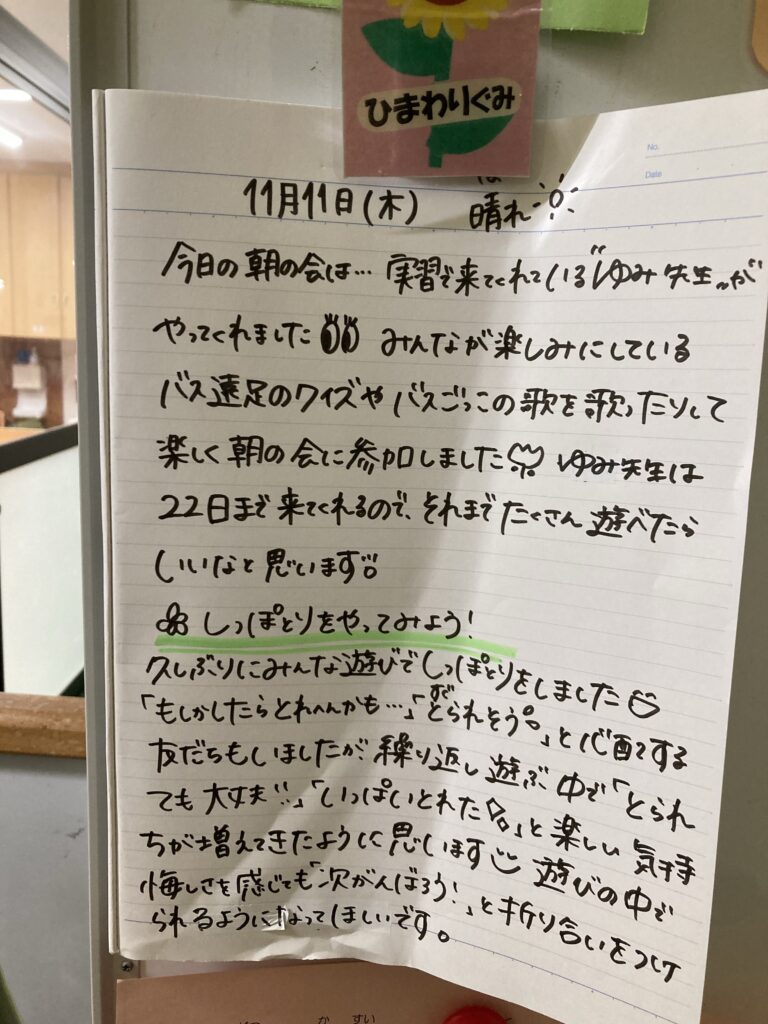 ひまわりぐみ
No.
Date
11月11日(木) 晴れ
は
今日の朝の会は… 実習で来てくれている"ゆみ先生"が
やってくれました みんなが楽しみにしている
バス遠足のクイズや バスごっこの歌を歌ったりして
楽しく朝の会に参加しました ゆみ先生は
22日まで来てくれるので、それまでたくさん遊べたら
いいなと思います。
しっぽとりをやってみよう!
久しぶりにみんな遊びでしっぽとりをしました
「もしかしたらとれへんかも…」「すぐとられそう。」と心配する
友だちもしましたが繰り返し遊ぶ中で「とられ
ても大丈夫!!」「いっぱいとれた」と楽しい気持
ちが増えてきたように思います 遊びの中で
悔しさを感じても「次がんばろう!」と折り合いをつけ
られるようになってほしいです。
か すい